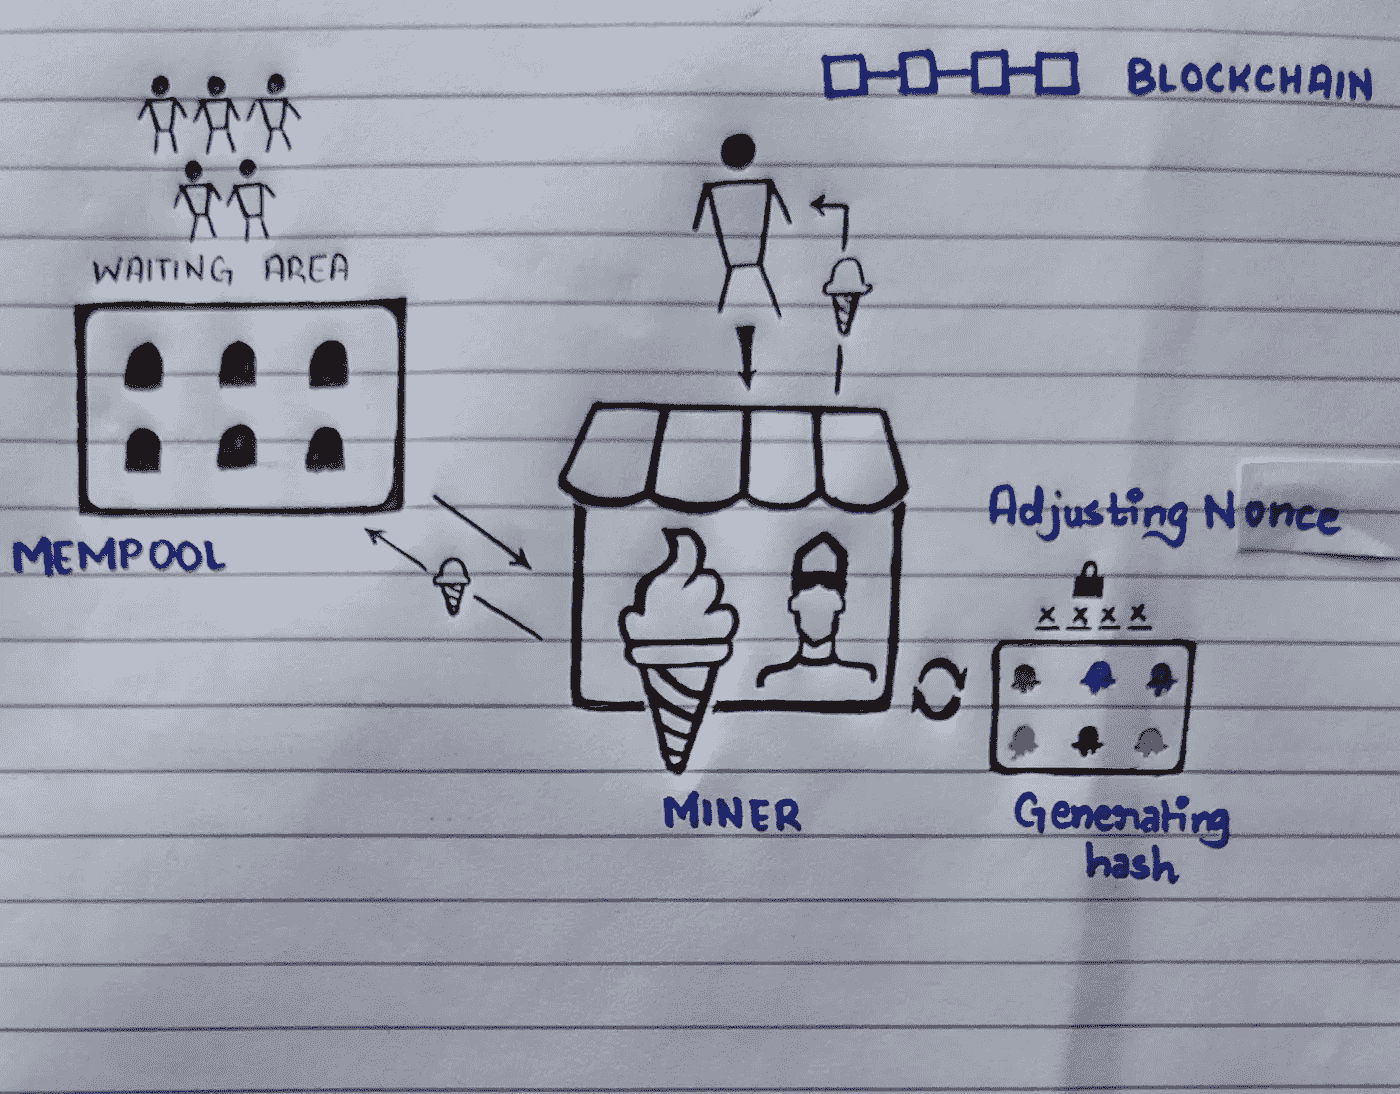 BLOCKCHAIN
WAITING AREA
MEMPOOL
Adjusting Nonce
x x x x
MINER
Generating
hash